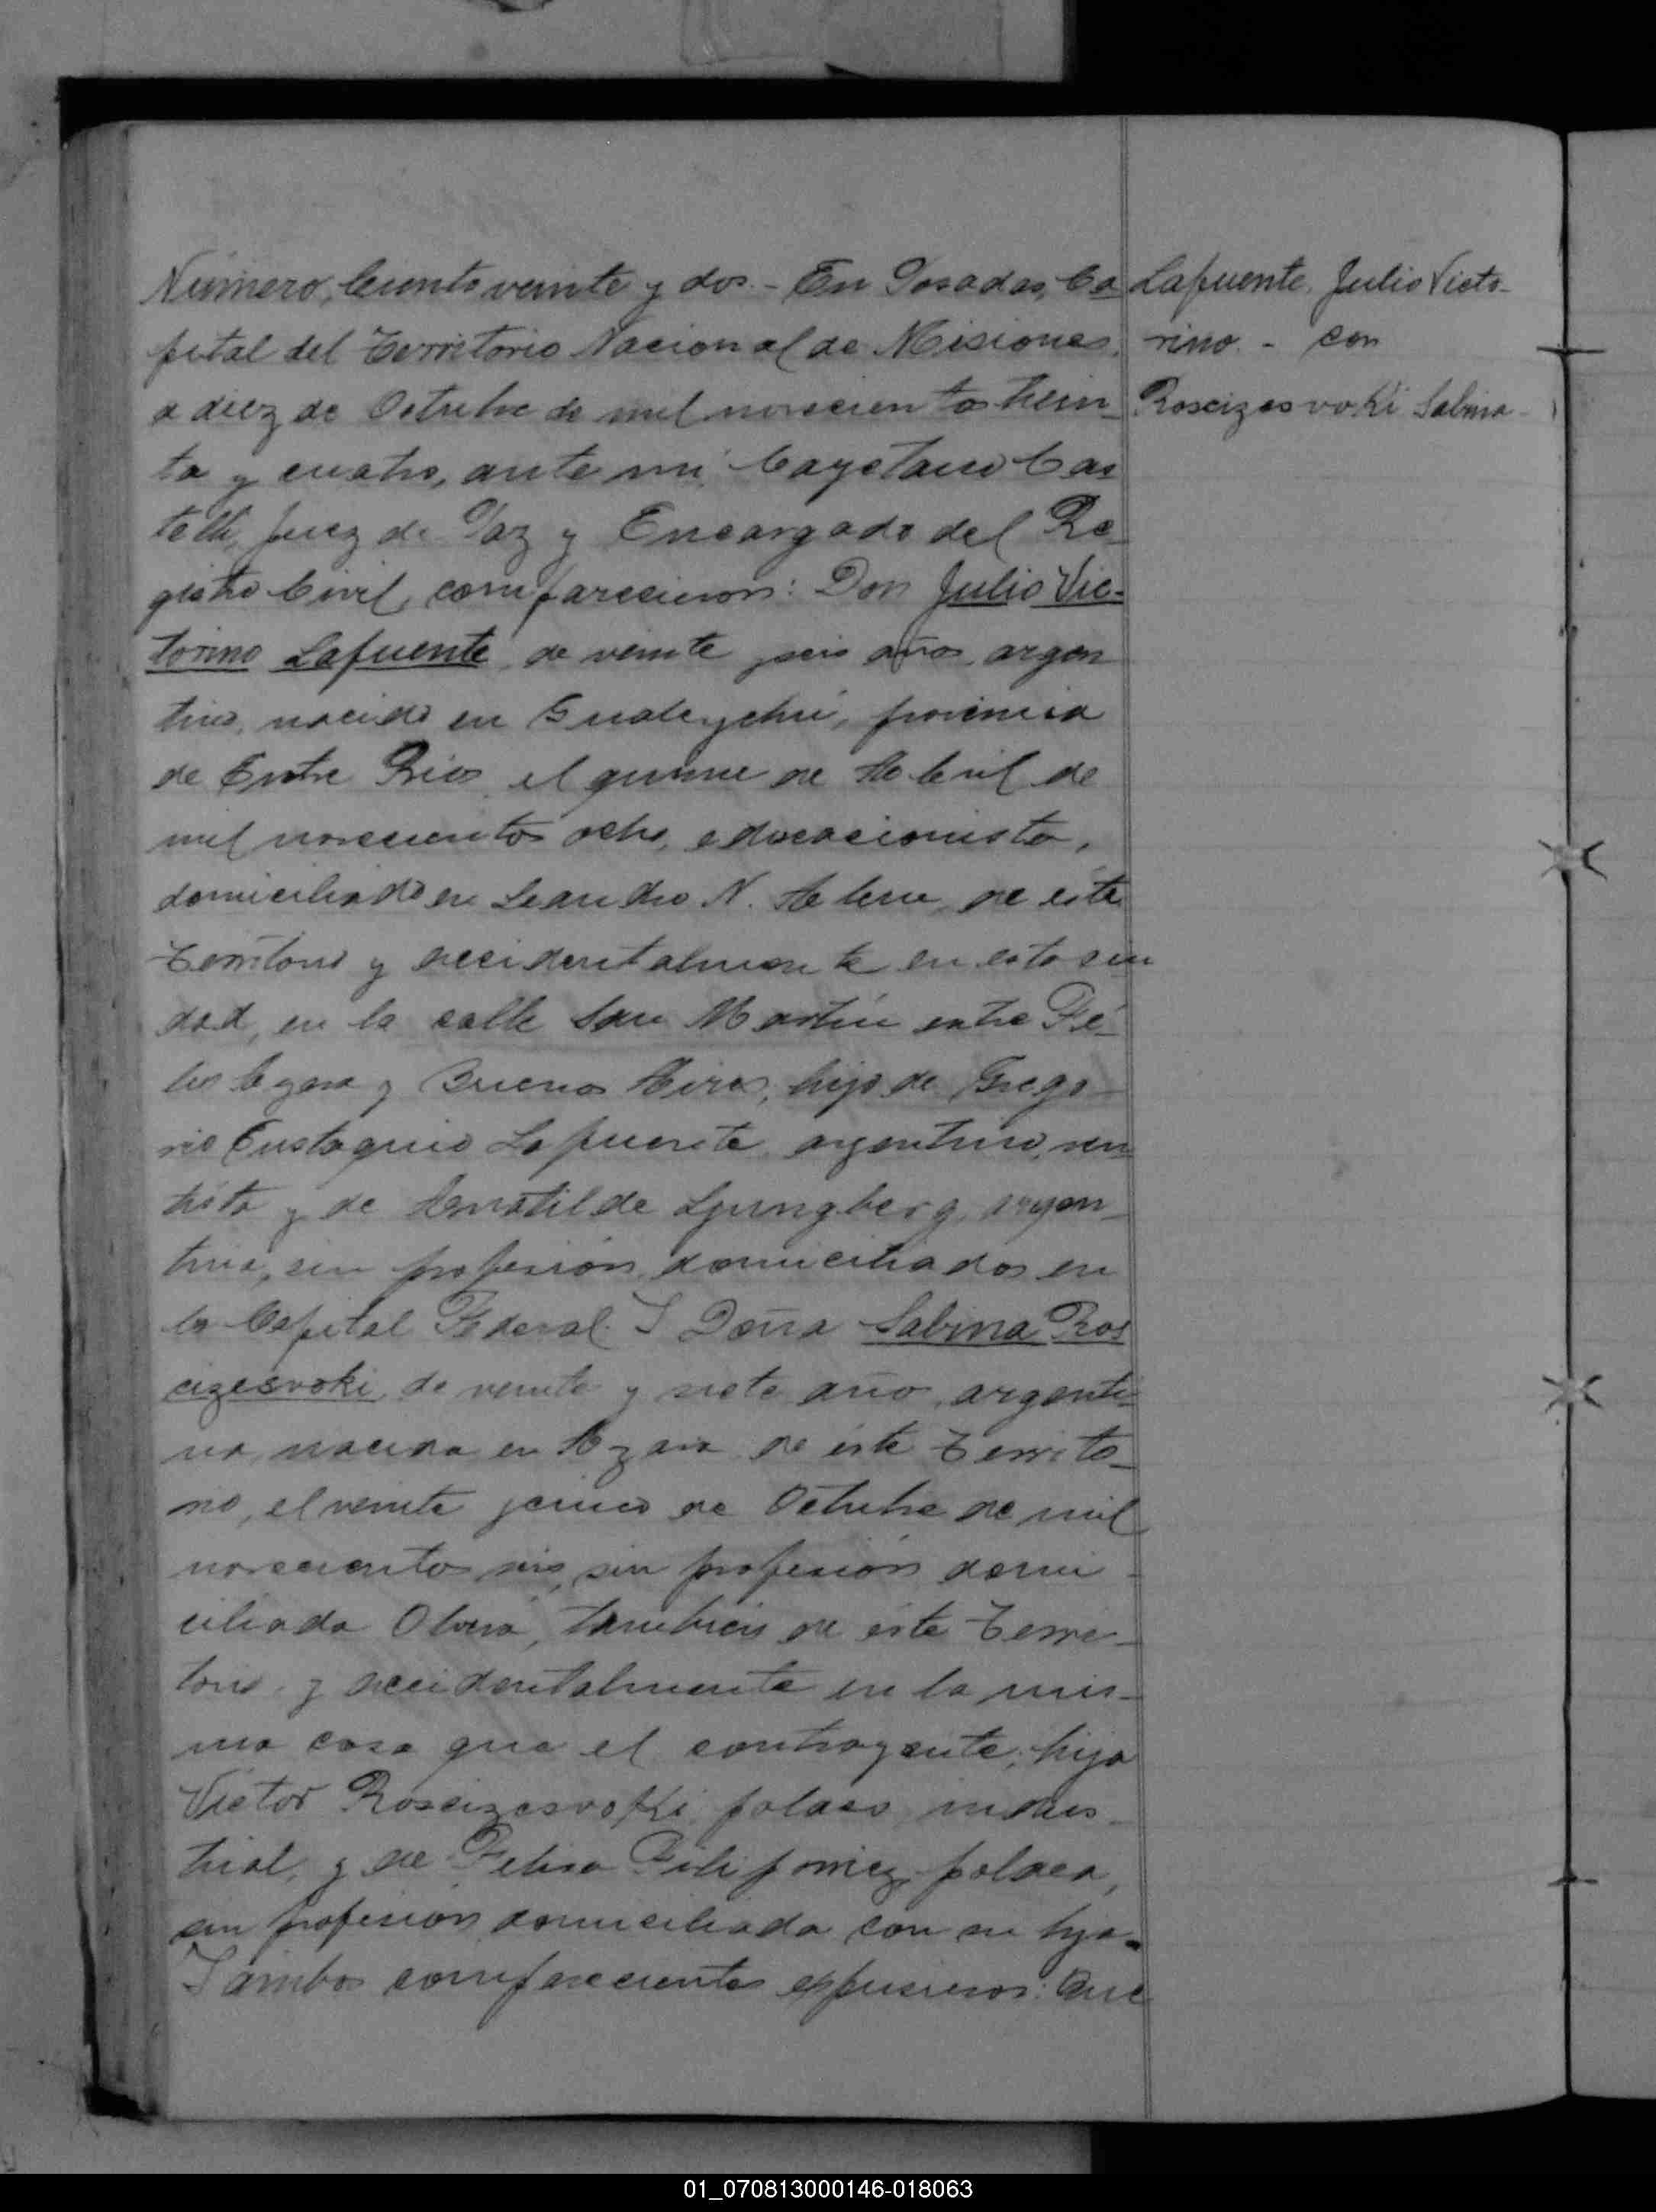 Número, Ciento veinte y dos.- En Posadas, Ca
pital del Territorio Nacional de Misiones,
a diez de Octubre de mil novecientos trein_
ta y cuatro, ante mí, Cayetano Cas
telli, Juez de Paz y Encargado del Re_
gistro Civil, comparecieron: Don Julio Vic-
torino Lafuente, de veinte y seis años, argen
tino, nacido en Gualeychú, provincia
de Entre Rios, el quince de Abril de
mil novecientos ocho, educacionista,
domiciliado en Leandro N. Alem, de este
Territorio y accidentalmente en esta ciu
dad, en la calle San Martín entre Fé_
lix Azara y Buenos Aires, hijo de Grego_
rio Eustaquio Lafuente, argentino, ren
tista y de Clotilde Ljungberg, argen_
tina, sin profesión, domiciliados en
la Capital Federal. Y Doña Sabina Ros
cizesvoki, de veinte y siete año, argenti_
na, nacida en Azara de éste Territo_
rio, el veinte y cinco de Octubre de mil
novecientos seis, sin profesión, domi_
ciliada Oberá, también de éste Terri_
torio y accidentalmente en la mis_
ma casa que el contrayente; hija
Victor Roscizesvoki, polaco, indus_
trial, y de Felisa polaca,
sin profesión, domiciliada con su hija.
Y ambos comparecientes expusieron: Que
Lafuente, Julio Victo-
rino. - con
Roscizesvoki Sabina-
01_070813000146-018063